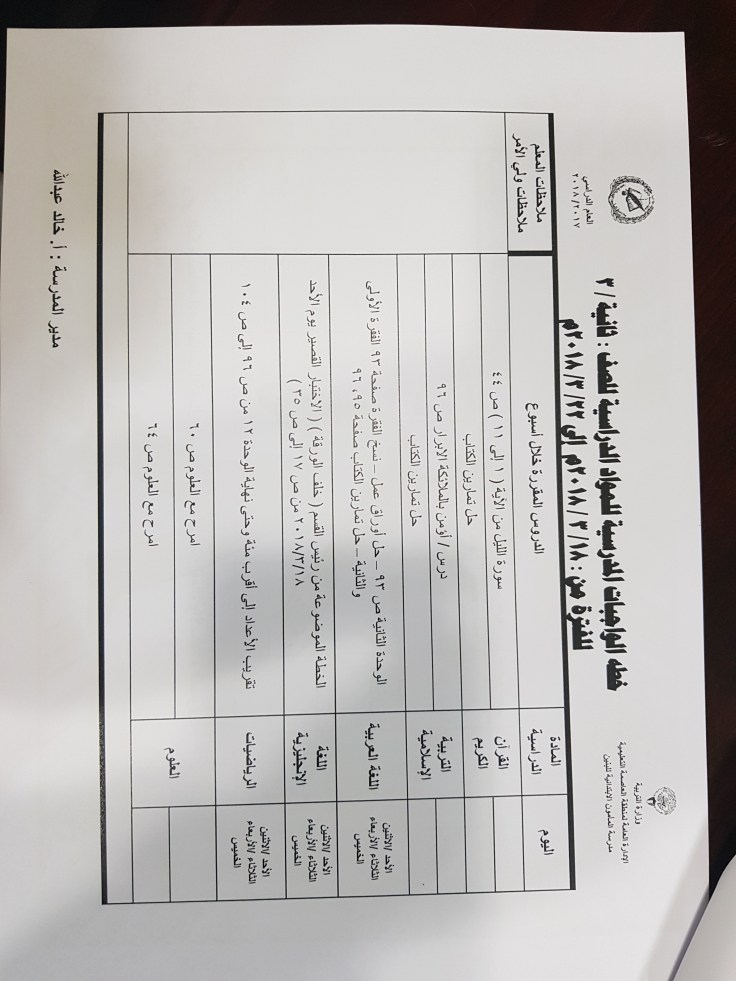 وزارة التربية
الإدارة العامة لمنطقة العاصمة التعليمية
مدرسة المأمون الابتدائية للبنين
خطة الواجبات المدرسية للمواد الدراسية للصف : ثانية / ٣
للفترة من : ١٨ / ٣ / ٢٠١٨م إلى ٢٢ / ٣ / ٢٠١٨م
العام الدراسي
٢٠١٨/٢٠١٧
اليوم
المادة الدراسية
الدروس المقررة خلال أسبوع
ملاحظات المعلم
ملاحظات ولي الأمر
القرآن الكريم
سورة الليل من الآية ( ١ إلى ١١ ) ص ٤٤
حل تمارين الكتاب
التربية الإسلامية
درس / أؤمن بالملائكة الابرار ص ٩٦
حل تمارين الكتاب
الأحد /الاثنين
الثلاثاء /الأربعاء
الخميس
اللغة العربية
الوحدة الثانية ص ٩٣ – حل أوراق عمل – نسخ الفقرة صفحة ٩٣ الفقرة الأولى
والثانية – حل تمارين الكتاب صفحة ٩٥ ، ٩٦
الأحد /الاثنين
الثلاثاء /الأربعاء
الخميس
اللغة الإنجليزية
الخطة الموضوعة من رئيس القسم ( خلف الورقة ) ( الاختبار القصير يوم الأحد
٢٠١٨/٣/١٨ من ص ١٧ إلى ص ٢٥ )
الأحد /الاثنين
الثلاثاء /الأربعاء
الخميس
الرياضيات
تقريب الأعداد إلى أقرب مئة وحتى نهاية الوحدة ١٢ من ص ٩٦ إلى ص ١٠٤
العلوم
امرح مع العلوم ص ٦٠
امرح مع العلوم ص ٦٤
مدير المدرسة : أ. خالد عبدالله